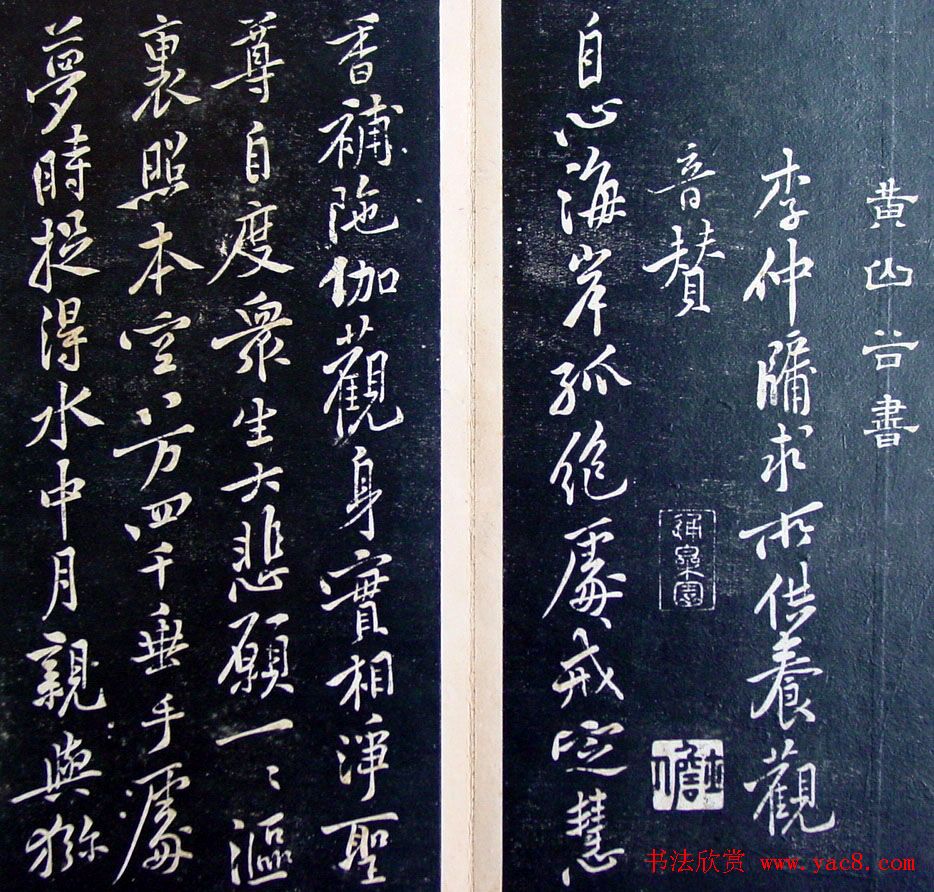 黄山谷書
李仲牖求所供養觀
音賛
自心海岸孤絶處戒定慧
香補陁伽觀身實相淨聖
尊自度衆生大悲願一〻漚
裏照本空八万四千垂手處
夢時捉得水中月親與猕
书法欣赏 www.yac8.com